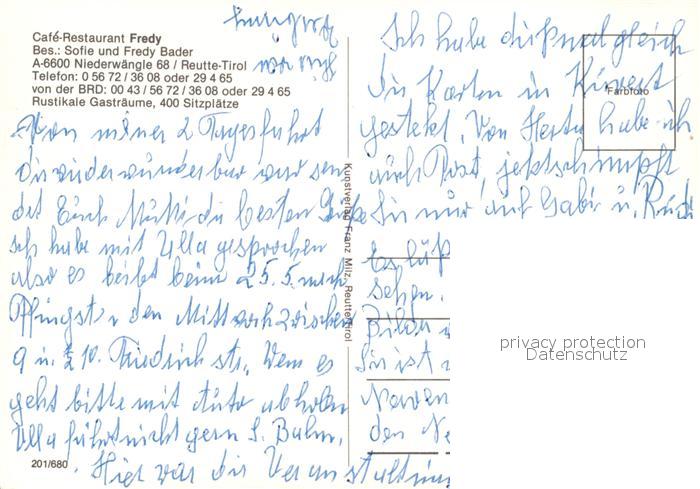 Café-Restaurant Fredy
Bes.: Sofie und Fredy Bader
A-6600 Niederwängle 68 / Reutte-Tirol
Telefon: 0 56 72 / 36 08 oder 29 4 65
von der BRD: 00 43 / 56 72 / 36 08 oder 29 4 65
Rustikale Gasträume, 400 Sitzplätze
Von meiner 2 Tagesfahrt
die wieder wunderbar war sen
det Euch Mutti die besten Grüße
Ich habe mit Ulla gesprochen
also es beibt beim 25.5. nach
Pfingst den Mittwoch zwischen
9 u. 10. Friedrichstr. Wenn es
geht bitte mit Auto abholen
Ulla fährt nicht gern S. Bahn.
Hier war die Veranstaltung
Ich habe diesmal gleich
die Karten in Kuvert
gestekt. Von Herta habe ich
auch Post, jetzt schimpft
Sie nur auf Gabi u. Rudi
Es
sehen.
Bilder
Sie ist
Nerven
den
Farbfoto
Kunstverlag Franz Milz, Reutte-Tirol
201/680
privacy protection
Datenschutz